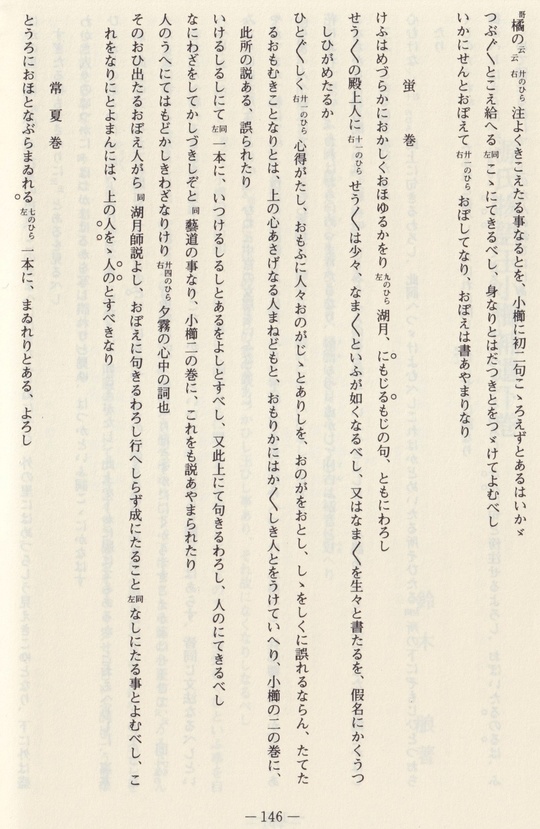 哥橘の云云 廿のひら右 注よくきこえたる事なるとを、小櫛に初二句こゝろえずとあるはいかゞ
つぶ〳〵とこえ給へる 同左 こゝにてきるべし、身なりとはだつきとをつゞけてよむべし
いかにせんとおぼえて 廿一のひら右 おぼしてなり、おぼえは書あやまりなり
螢巻
けふはめづらかにおかしくおほゆるかをり 九のひら左 湖月、にもじるもじの句、ともにわろし
せう〳〵の殿上人に 十一のひら右 せう〳〵は少々、なま〳〵といふが如くなるべし、又はなま〳〵を生々と書たるを、假名にかくうつ
しひがめたるか
ひと〴〵しく 廿一のひら右 心得がたし、おもふに人々おのがじゝとありしを、おのがをおとし、しゝをしくに誤れるならん、たてた
るおもむきことなりとは、上の心あさげなる人まねどもと、おもりかにはか〴〵しき人とをうけていへり、小櫛の二の巻に、
此所の説ある、誤られたり
いけるしるしにて 同左 一本に、いつけるしるしとあるをよしとすべし、又此上にて句きるわろし、人のにてきるべし
なにわざをしてかしづきしぞと 同 藝道の事なり、小櫛二の巻に、これをも説あやまられたり
人のうへにてはもどかしきわざなりけり 廿四のひら右 夕霧の心中の詞也
そのおひ出たるおぼえ人がら 同 湖月師説よし、おぼえに句きるわろし行へしらず成にたること 同左 なしにたる事とよむべし、こ
れをなりにとよまんには、上の人をゝ人のとすべきなり
常夏巻
とうろにおほとなぶらまゐれる 七のひら左 一本に、まゐれりとある、よろし
—146—